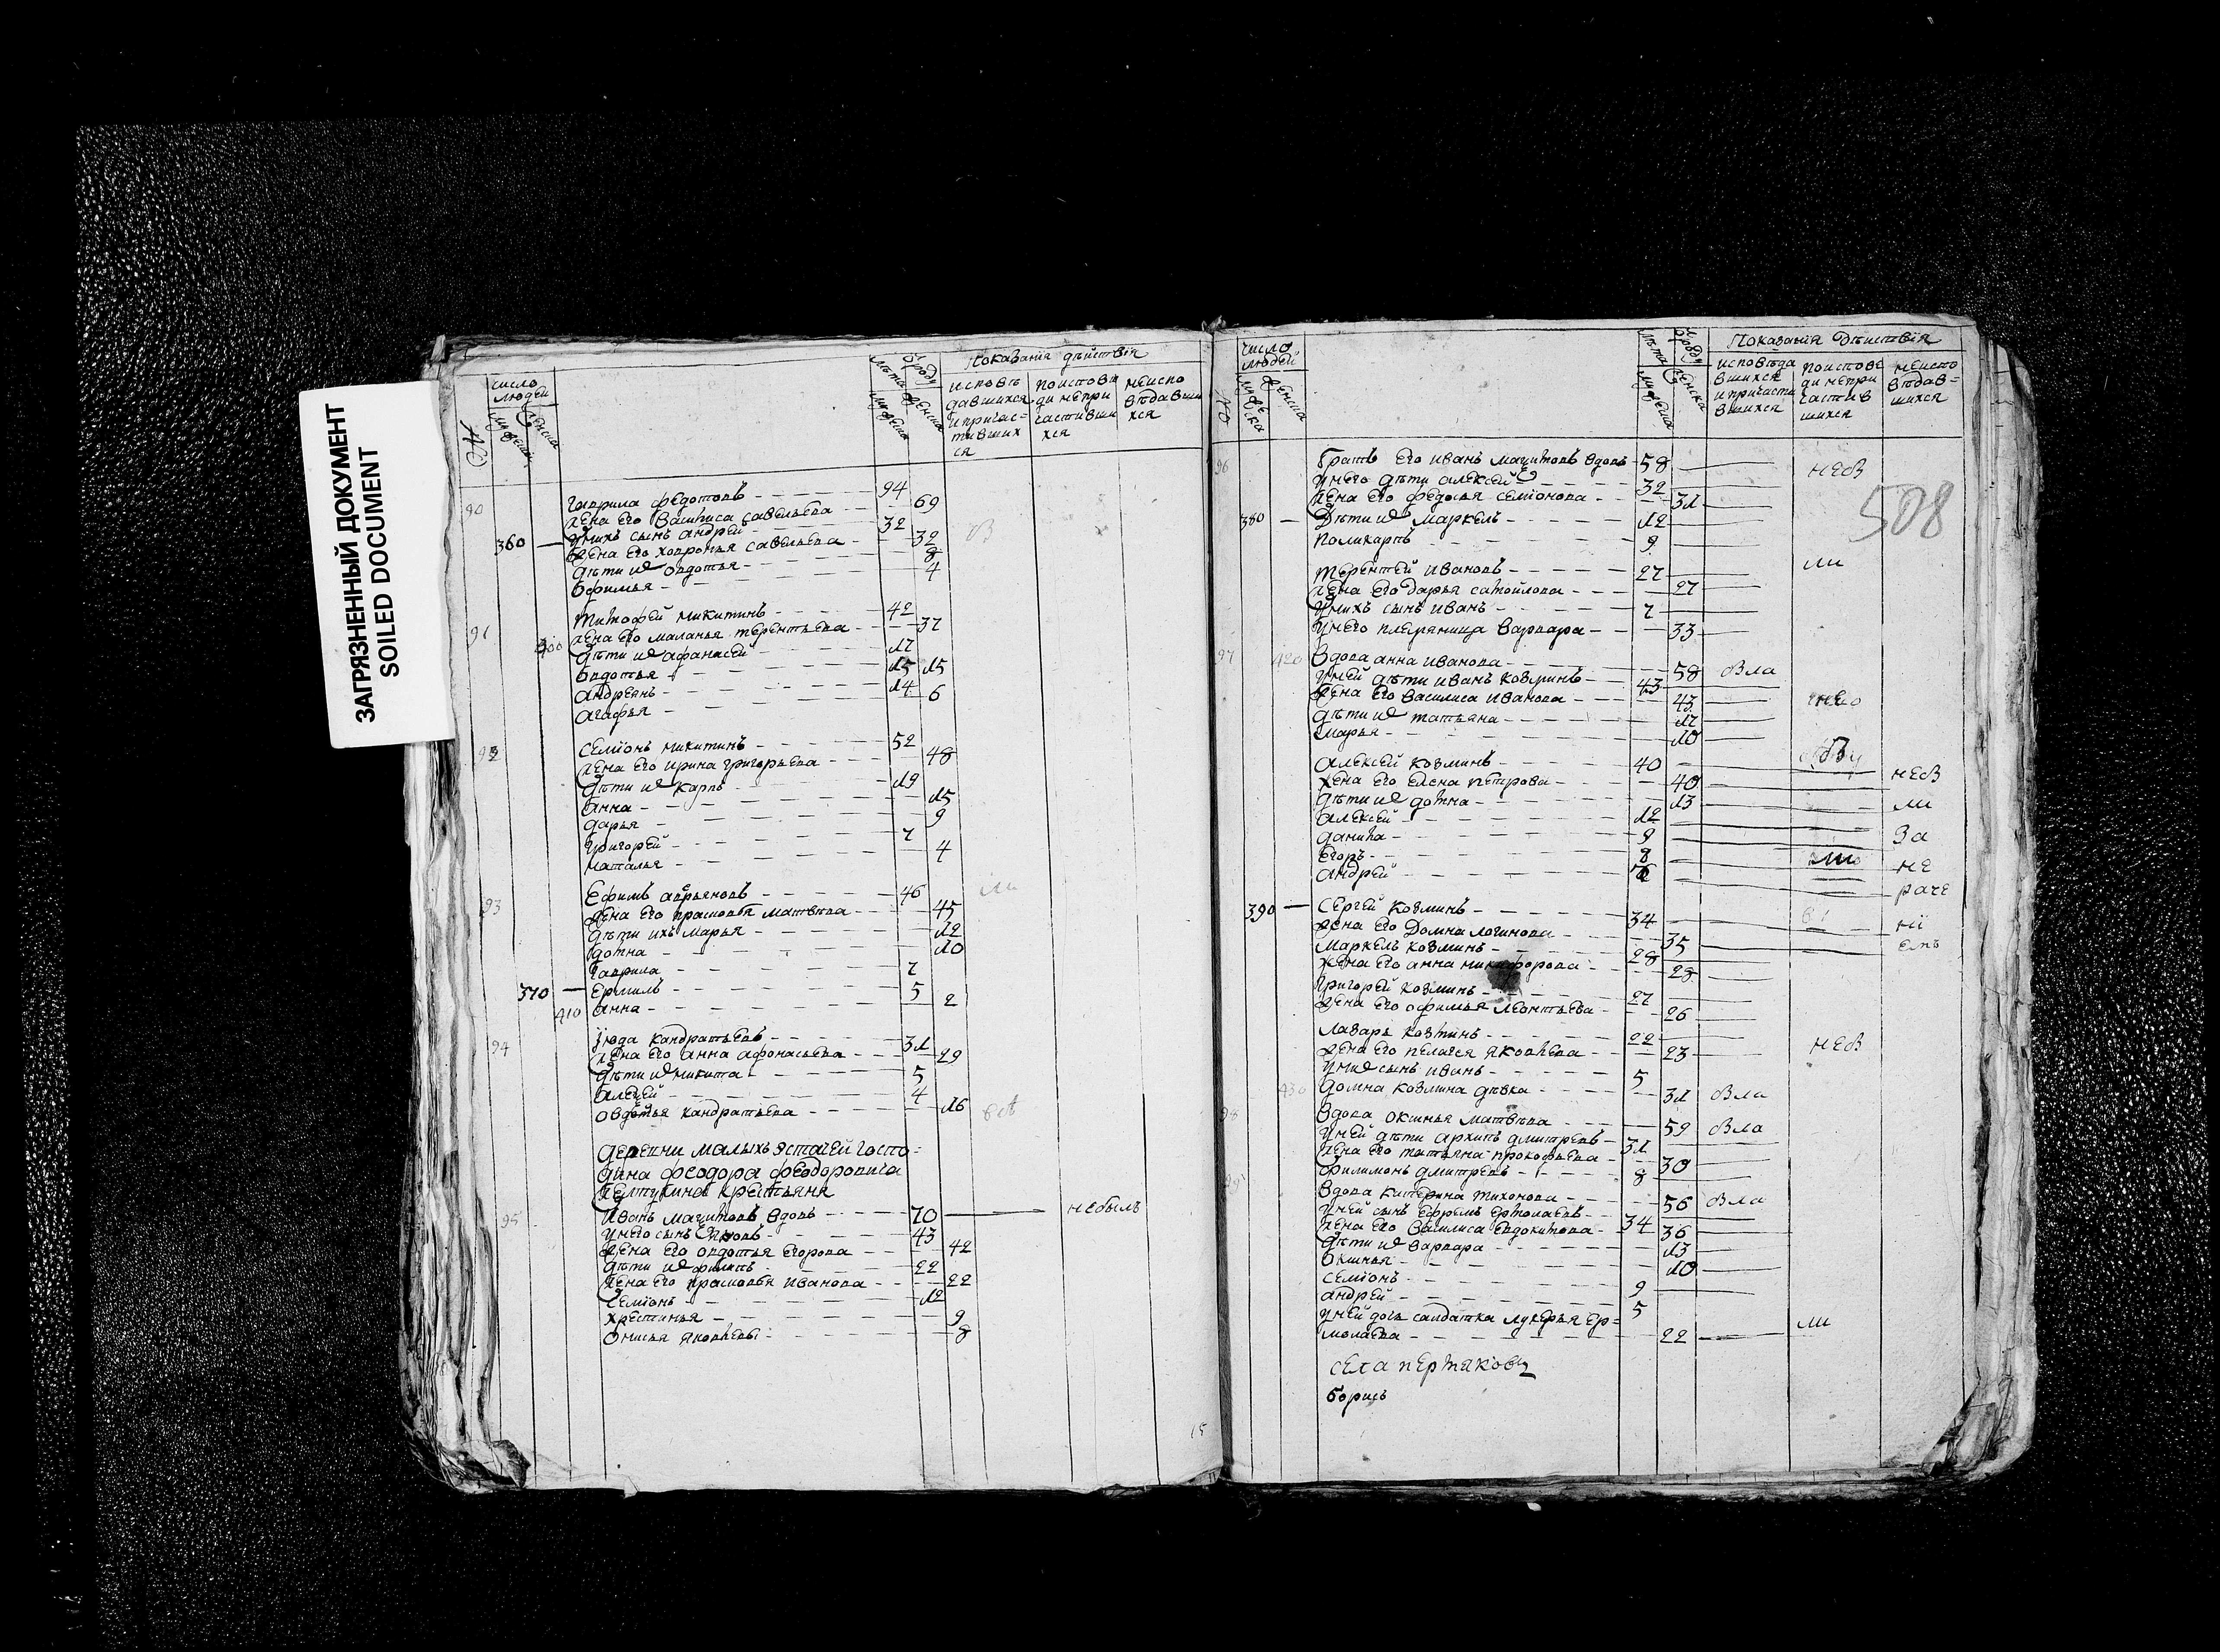 ЗАГРЯЗНЕННЫЙ ДОКУМЕНТ
SOILED DOCUMENT
число людей
Показания дѣйствия
исповѣдавшихся и причастившихся
по исповѣди не причастившихся
не исповѣдавшихся
90
Гаврила Федотовъ 94
жена его Василиса Савельева 69
360 у нихъ сынъ Андрей 32
жена его Ховронья Савельева 32
дѣти их Овдотья 8
Офимья 4
91
Тимофей Микитинъ 42
жена его Маланья Терентьева 37
400 дѣти их Афанасей 17
Овдотья 15 15
Андреянъ 14
Агафья 6
92
Семіонъ Микитинъ 52
жена его Ирина Григорьева 48
дѣти их Карпъ 19
Анна 15
Дарья 9
Григорей 7
Наталья 4
93
Ефимъ Аврьяновъ 46
жена его Прасковья Матвѣева 45
дѣти ихъ Марья 12
Домна 10
Гаврила 7
370 Ермилъ 5
410 Анна 2
94
Іюда Кандратьевъ 31
жена его Анна Афонасьева 29
дѣти их Микита 5
4
Овдотья Кандратьева 16
деревни малыхъ господина Феодора Феодоровича крестьяня
95
Иванъ вдовъ 70 не былъ
у него сынъ Яковъ 43
жена его Овдотья Егорова 42
дѣти их Филипъ 22
жена его Прасковья Иванова 22
Семіонъ 12
Хрестинья 9
Онисья Яковлевы 8
15
число людей
Показания дѣиствия
исповѣдавшихся и причастившихся
по исповеди не причастившихся
не исповѣдавшихся
508
96
братъ его Иванъ вдовъ 58
у него дѣти Алексей 32
жена его Федосья Семіонова 31
380 дѣти их Маркелъ 12
Поликарпъ 9
Терентей Ивановъ 27
жена его Дарья Самойлова 27
у нихъ сынъ Иванъ 7
у него племяница Варвара 33
97
420 вдова Анна Иванова 58 вла
у ней дѣти Иванъ Козминъ 43
жена его Василиса Иванова 43
дѣти их Татьяна 17
Марья 10
Алексей Козминъ 40
жена его Елена Петрова 40
дѣти их Домна 13
Алексей 12
Данила 9
Егоръ 8
Андрей
390 Сергей Козминъ 34
жена его Домна Логинова 35
Маркелъ Козминъ 28
жена его Анна Микифорова 28
Григорей Козминъ 27
жена его Офимья Леонтьева 26
Лазарь Козминъ 22
жена его Пелагея Яковлева 23
у них сынъ Иванъ 5
430 Домна Козмина дѣвка 31 вла
98
вдова Оксинья Матвѣева 59 вла
у ней дѣти Архипъ Дмитревъ 31
жена его Татьяна Прокофьева 30
Филимонъ Дмитревъ 8
вдова Катерина Тихонова 56 вла
у ней сынъ Ефремъ Ермолаевъ 34
жена его Василиса Евдокимова 36
дѣти их Варвара 13
Оксинья 10
Семіонъ 9
Андрей 5
у ней дочь салдатка Лукерья Ер=
молаева 22
села
Борисъ